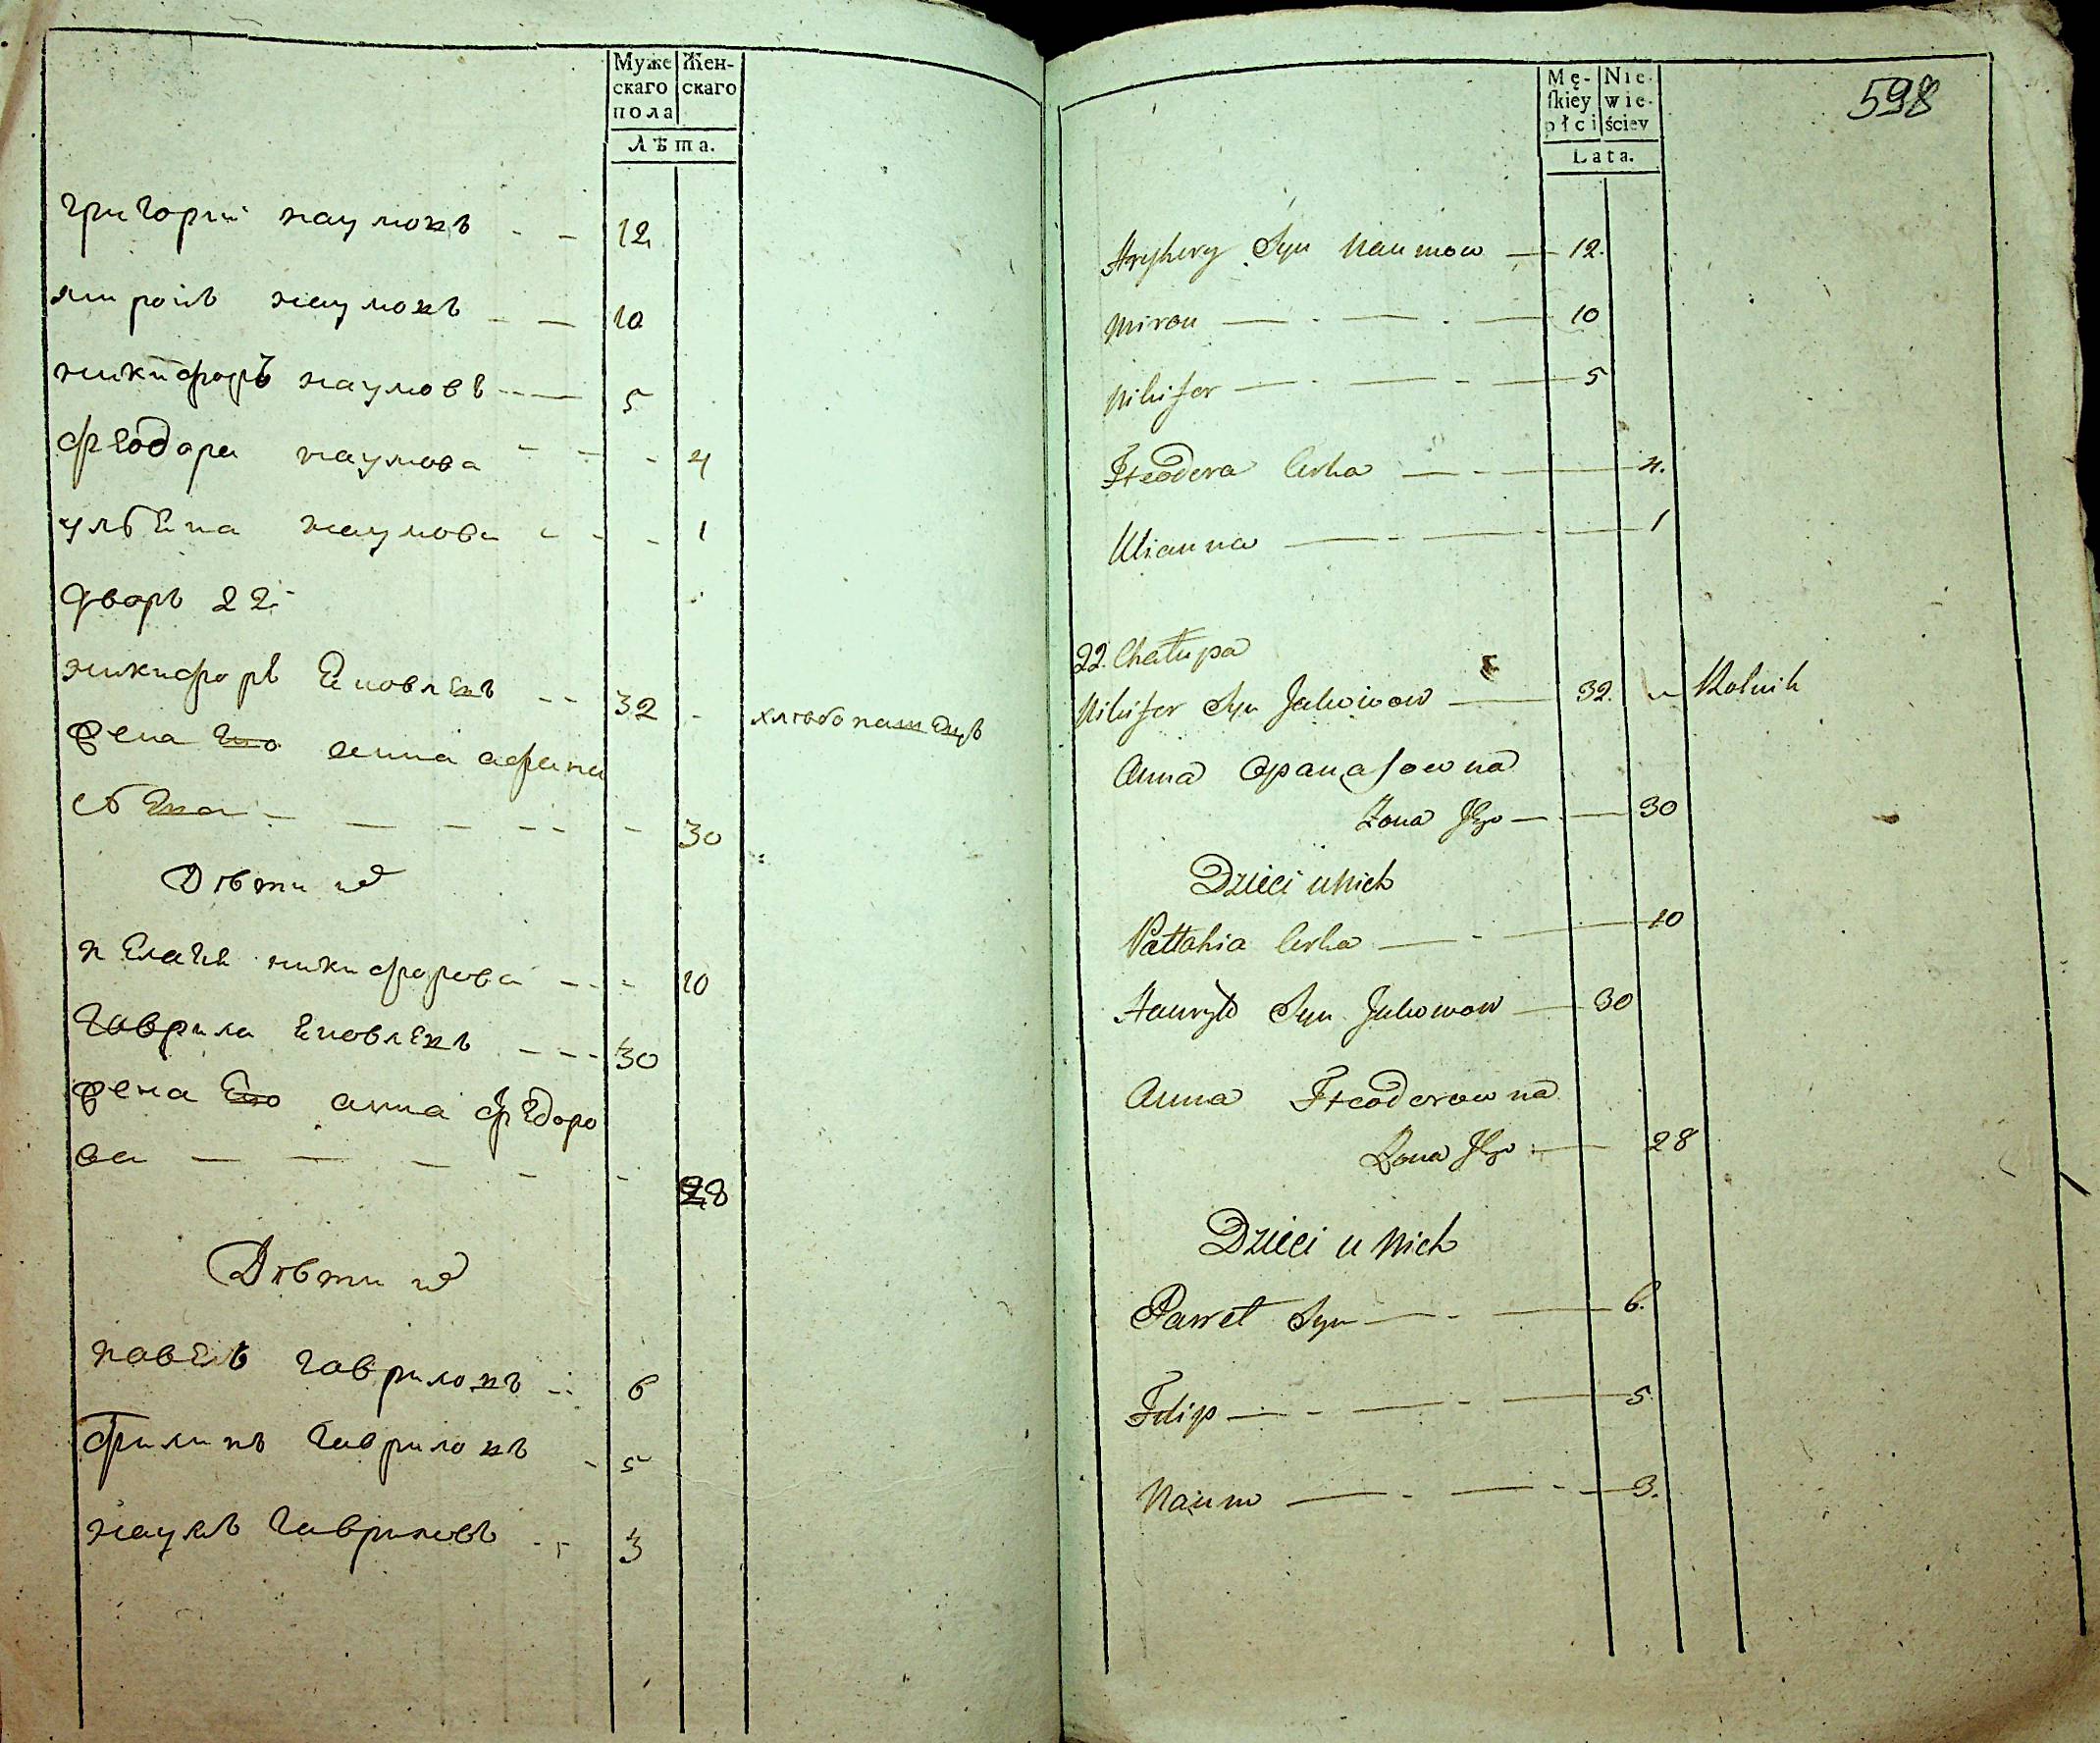 Муже
скаго
пола
Жен-
скаго
Лѣта.
григорий наумовъ - - 12
миронъ наумовъ - - 10
никифоръ наумовъ - - 5
феодора наумова - - - 4
ульѣна наумова - - - 1
дворъ 22
никифоръ Ековлевъ - - 32 - хлѣбопашецъ
жена Его анна афана
сьева - - - - - - 30
Дѣти ихъ
пелагѣя никифорова - - - 10
гаврила Ековлевъ - - - 30
жена Его анна федоро
ва - - - - - 28
Дѣти ихъ
павелъ гавриловъ - - 6
филипъ гавриловъ - 5
наумъ гавриловъ - - 3
Mę-
ſkiey
płci
Nie-
wie-
ściey
Lata.
598
Hryhory Syn Naumow — 12.
Miron — - — - — 10
Nikifer — - — - — 5
Fteodora Corka — - — 4.
Ulianna — - — - — 1
22. Chałupa
Nikifer Syn Jakowow — 32. Rolnik
Anna Opanaſowna
Zona Jego — - — 30
Dzieci u Nich
Pallahia Corka — - — 10
Hawryło Syn Jakowow — 30
Anna Fteodorowna
Zona Jego — 28
Dzieci u Nich
Paweł Syn — - — 6.
Filip — - — - — 5
Naum — - — - — 3.